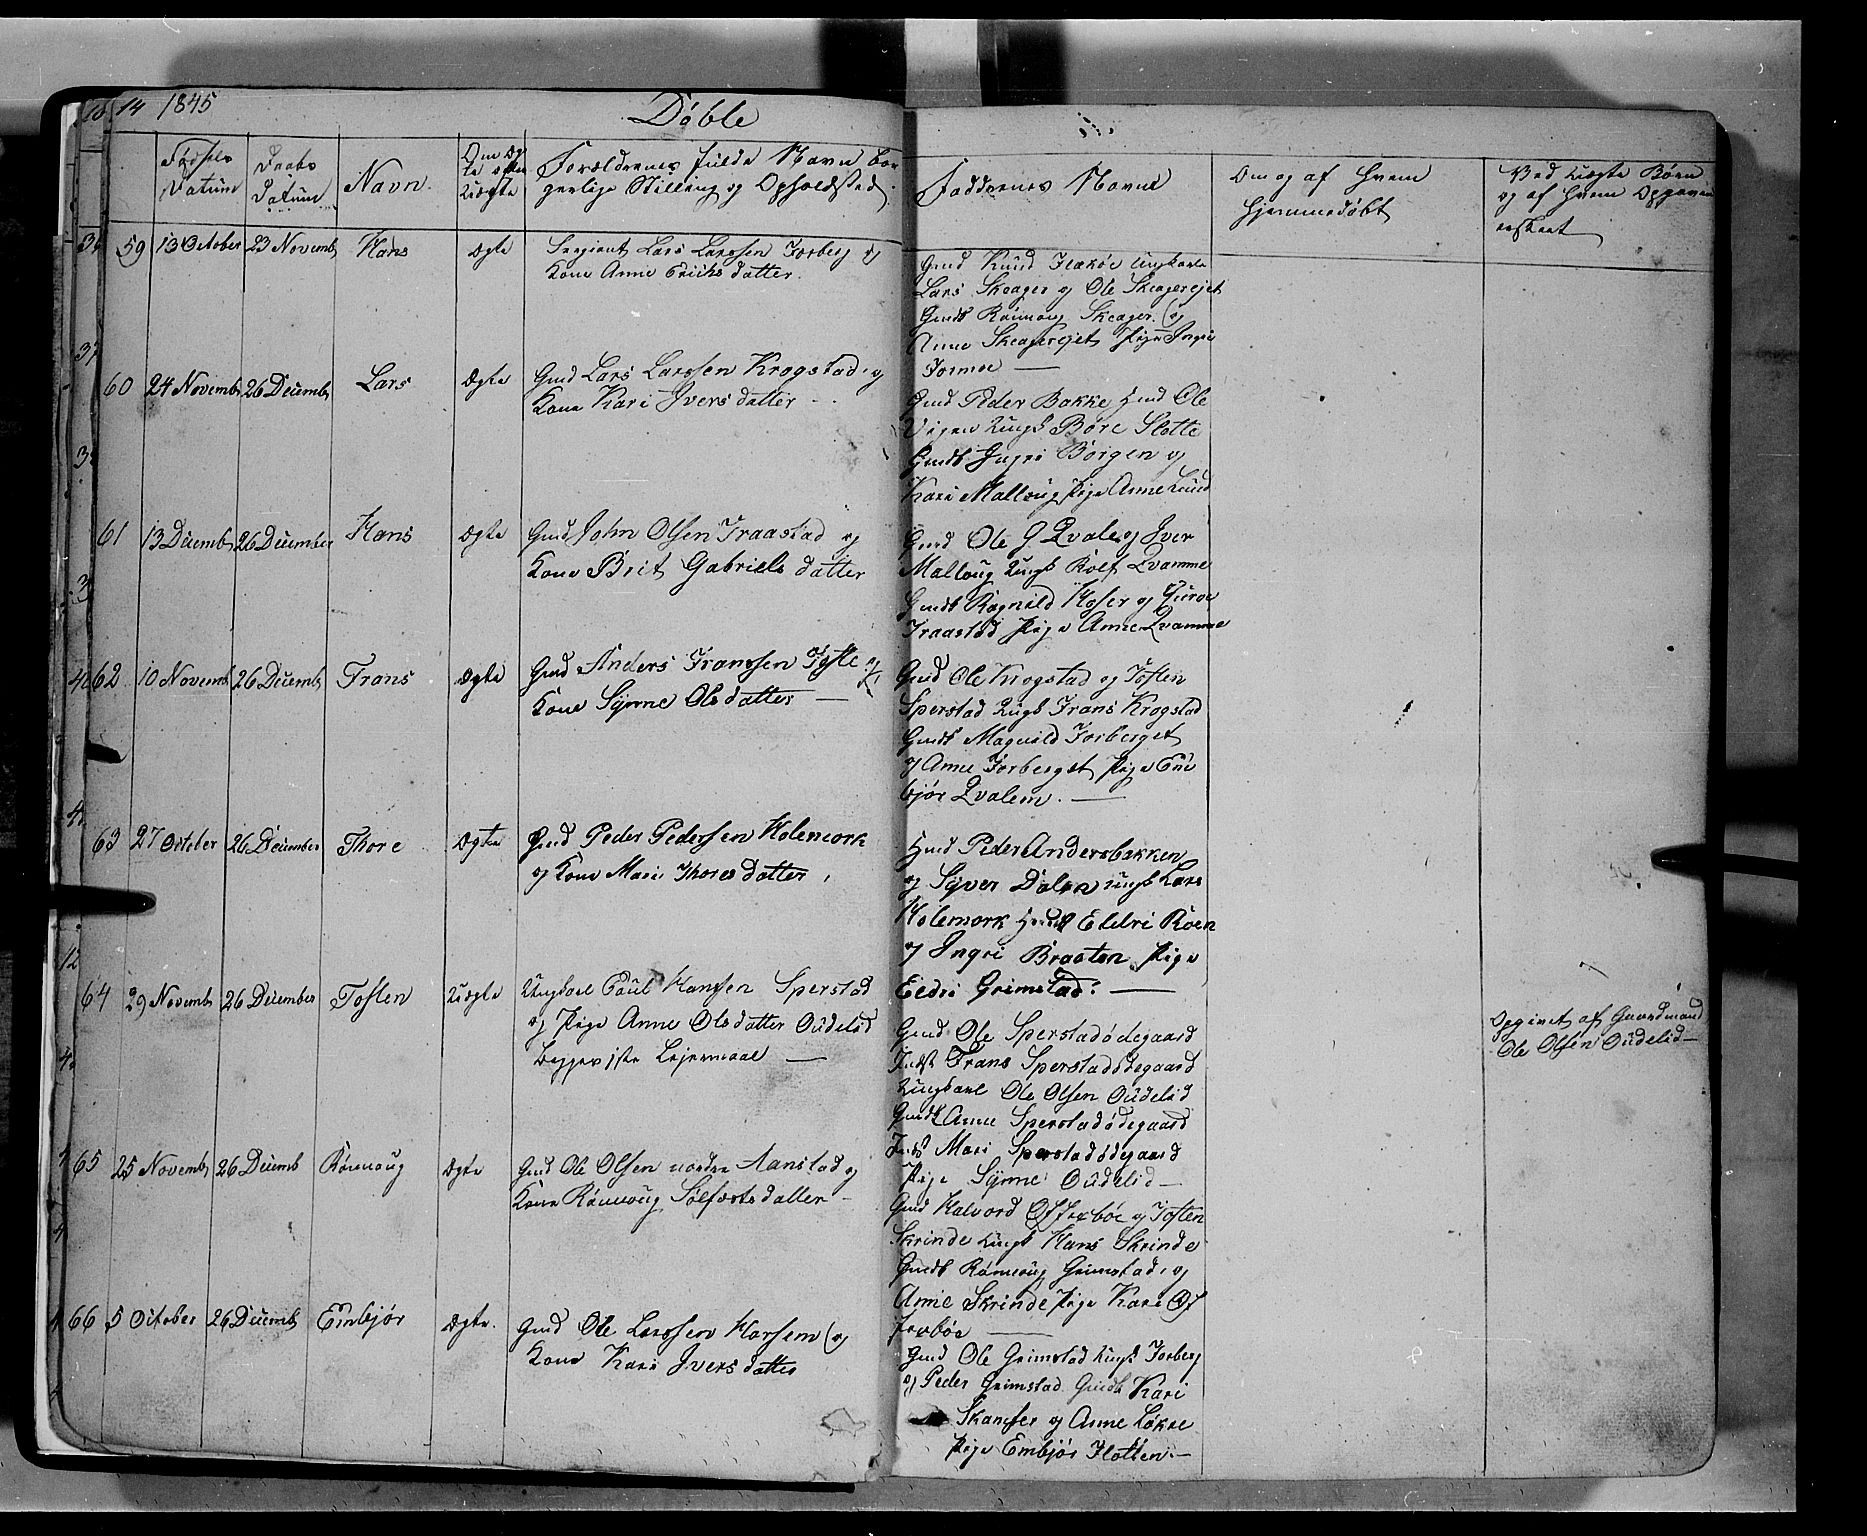 14 1845
Døbte
Fødsels
Datum
Daabs
Datum
Navn.
Om Æg
te eller
Uægte
Forældrenes fulde Navn bor
gerlige Stilling og Opholdsted.
Faddernes Navne
Om og af Hvem
hjemmedøbt
Ved Uægte Børn
og af hvem Opgaven
59 13 October 23 Novemb Hans Ægte
Sergiant Lars Larssen Forberg og
Kone Anne Eriks datter.
Gmd Knud Ungkarle
Lars Skeager og Ole Skeagerejet
Gmdk Rönnoug Skeager og
Anne Skeagerejet Pige Ingri
Formoe —
60 24 Novemb 26 Decemb Lars Ægte
Gmd Lars Larssen Krogstad og
Kone Kari Ivers datter
Gmd Peder Bakke Hmd Ole
Vigen Ungk Böre Slette
Gmdk Ingri Börgen og
Kari Malloug Pige Anne Lund
61 13 Decemb 26 December Hans Ægte
Gmd John Olsen Traastad og
Kone Brit Gabriels datter
Gmd Ole G. Qvale og Iver
Malloug Ungk Rolf Qvamme
Gmdk Ragnild Moser og Guroe
Traastad Pige Anne Qvamme
62 10 Novemb 26 Decemb Frans Ægte
Gmd Anders Franssen og
Kone Synne Ols datter —
Gmd Ole Krogstad og Tosten
Sperstad Ungk Frans Krogstad
Gmdk Magnild Forberget
og Anne Forberget Pige Em
björ Qvalem. —
63 27 October 26 December Thore Ægte
Gmd Peder Pedersen Holemork
og Kone Mari Thores datter.
Hmd Peder Andersbakken
og Syver Dalen Ungk Lars
Holemork Hmdk Eldri Roen
og Ingri Braaten Pige
Eldri Grimstad. —
64 29 Novemb 26 December Tosten Uægte
Ungkarl Poul Hansen Sperstad
og Pige Anne Olsdatter Oudelid
Begges 1ste Lejermaal —
Gmd Ole Sperstadødegaard
Indst Frans Sperstadødegaard
Ungkarl Ole Olsen Oudelid
Gmdk Anne Sperstadødegaard
Indst Mari Sperstadødegaard
Pige Synne Oudelid —
Opgivet af Gaardmand
Ole Olsen Oudelid —
65 25 Novemb 26 Decemb Rönnoug Ægte
Gmd Ole Olsen nordre Aanstad og
Kone Rönnoug Solfæsts datter —
Gmd Halvord og Tosten
Skrinde Ungk Hans Skrinde
Gmdk Rönnoug Grimstad og
Anne Skrinde Pige Kari
66 5 October 26 Decemb Embjör Ægte.
Gmd Ole Larssen og
Kone Kari Ivers datter
Gmd Ole Grimstad Ungk Forberg
og Peder Grimstad Gmdk Kari
Skamser og Anne Løkre
Pige Embjör Flotten. —